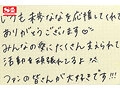 いつも未歩ななを応援してくれて
ありがとうございます♡
みんなの愛にたくさん支えられて
活動を頑張れてるよ^^
ファンの皆さんが大好きです!!!